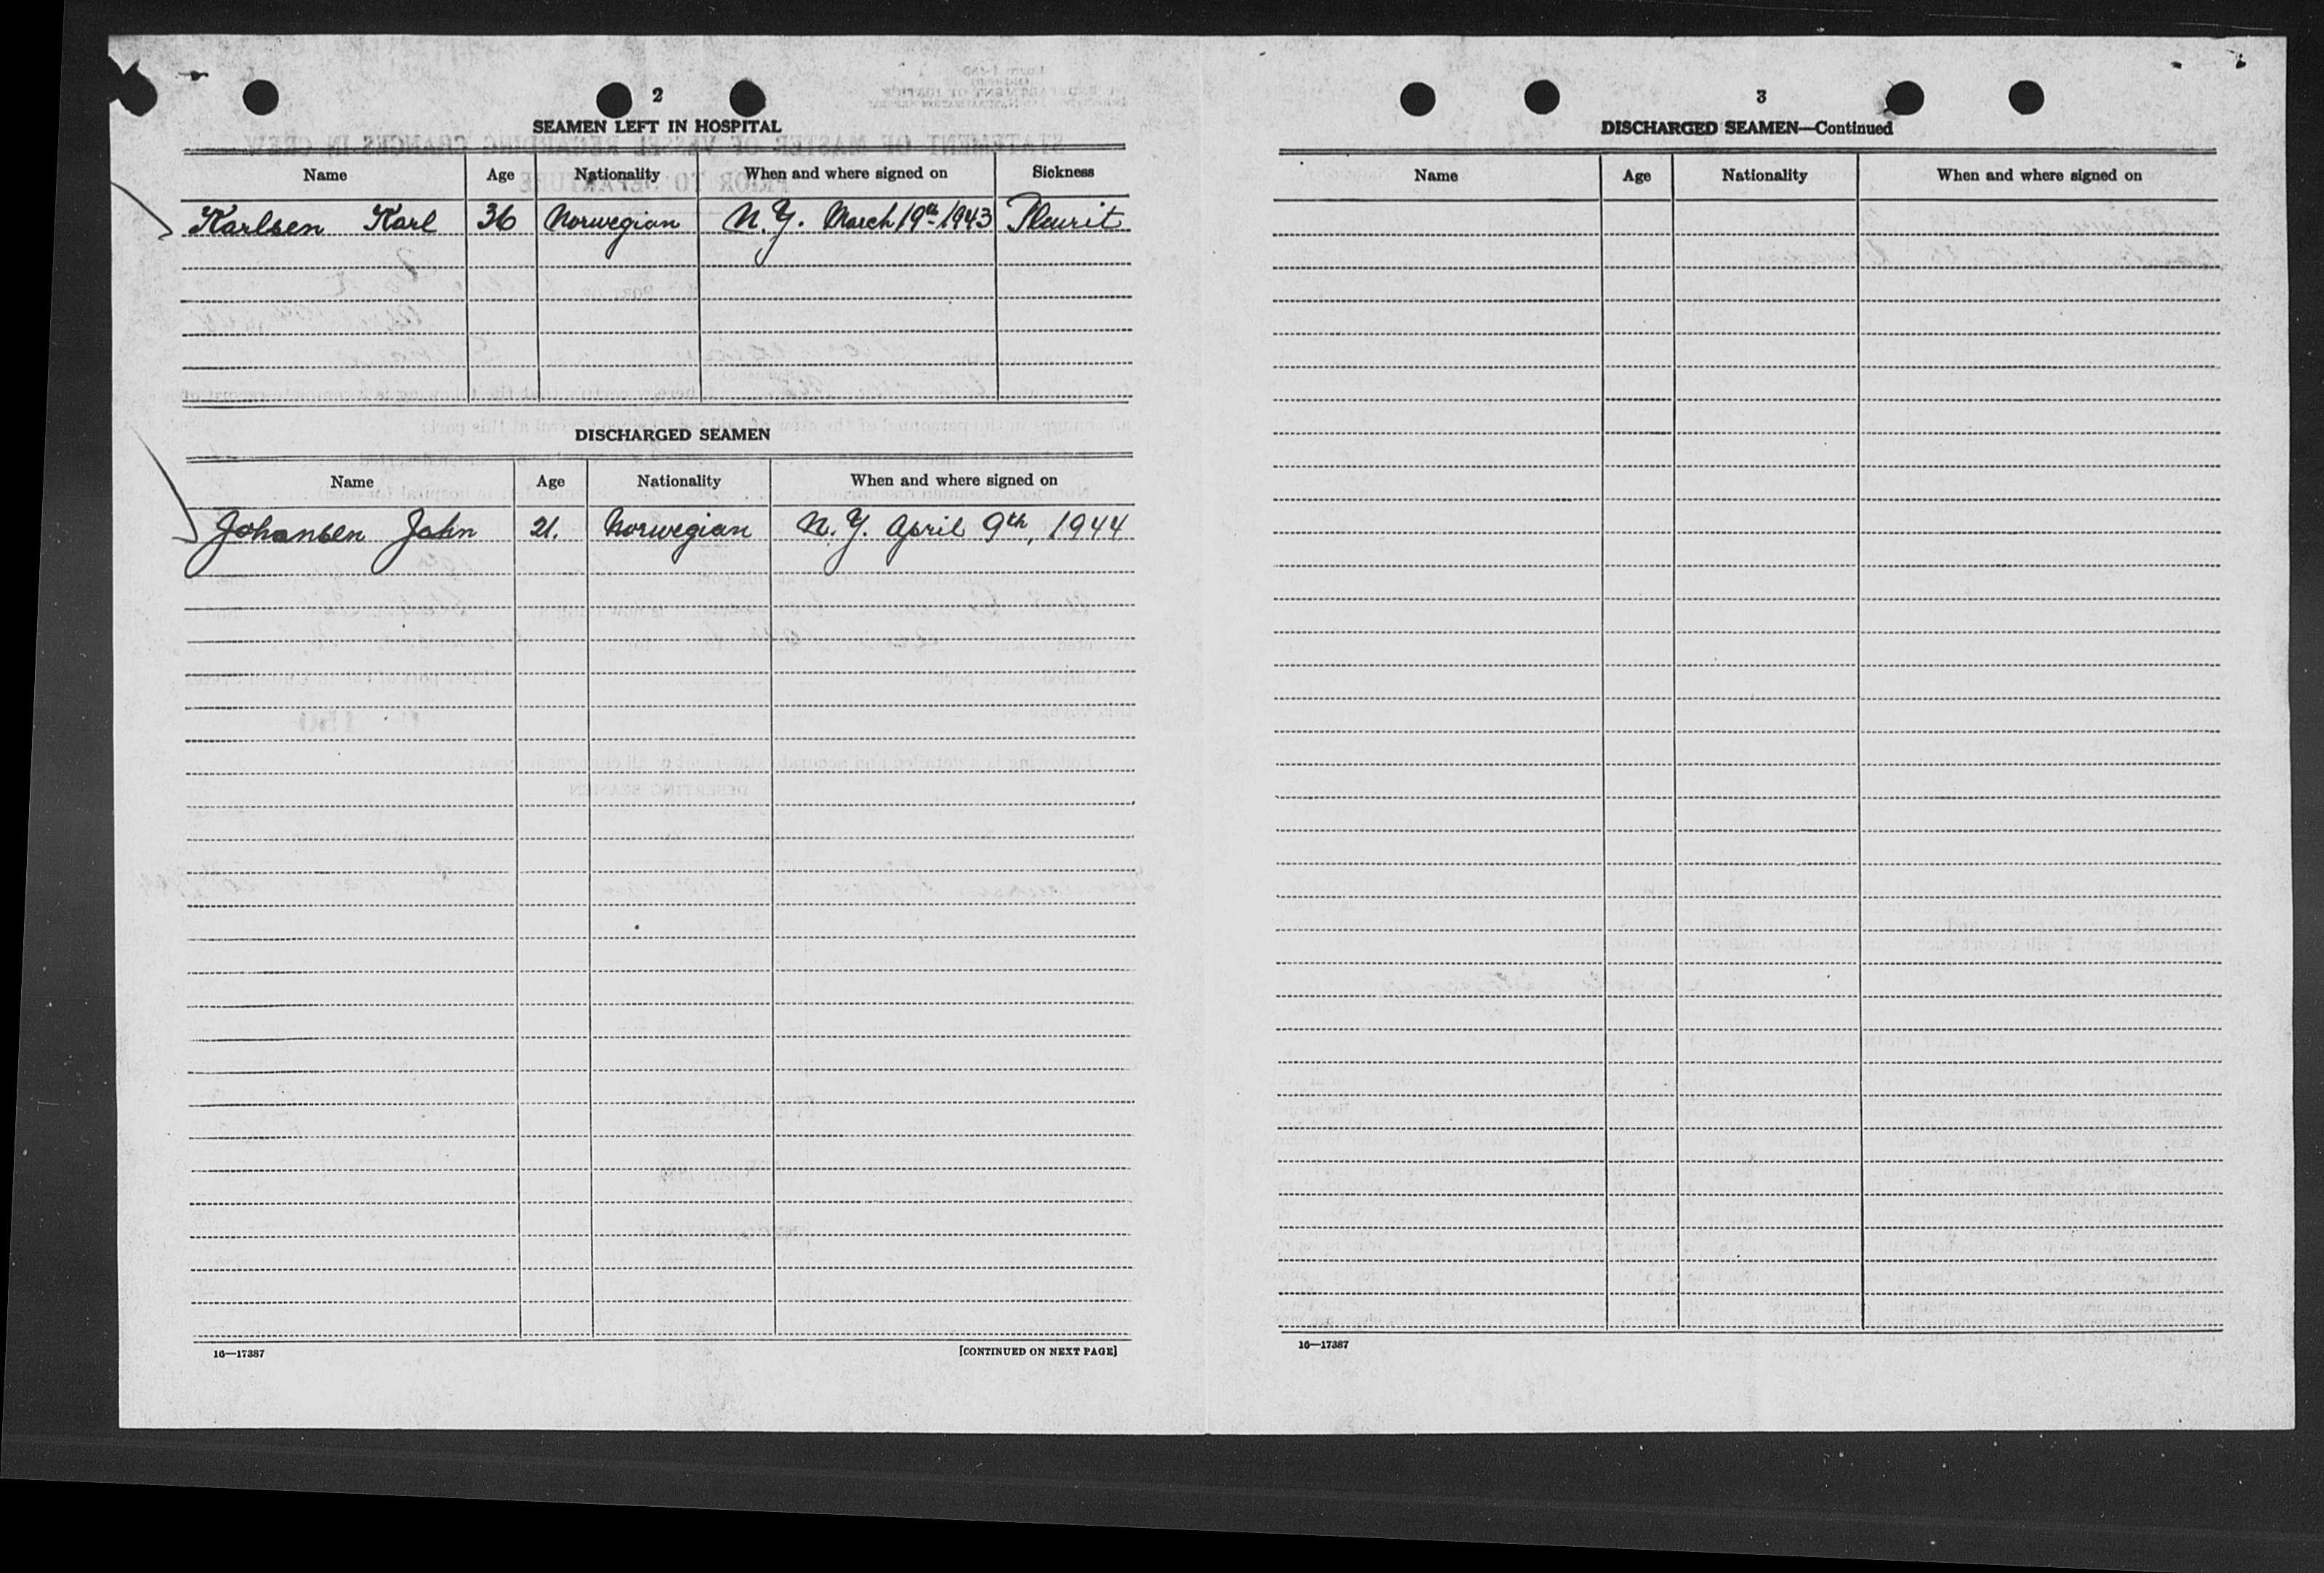 2
SEAMEN LEFT IN HOSPITAL
Name Age Nationality When and where signed on Sickness
Karlsen Karl 36 Norwegian N.Y. March 19th 1943 Pleurit
DISCHARGED SEAMEN
Name Age Nationality When and where signed on
Johansen John 21. Norwegian N.Y. April 9th, 1944
16—17387 [CONTINUED ON NEXT PAGE]
3
DISCHARGED SEAMEN—Continued
Name Age Nationality When and where signed on
16—17387